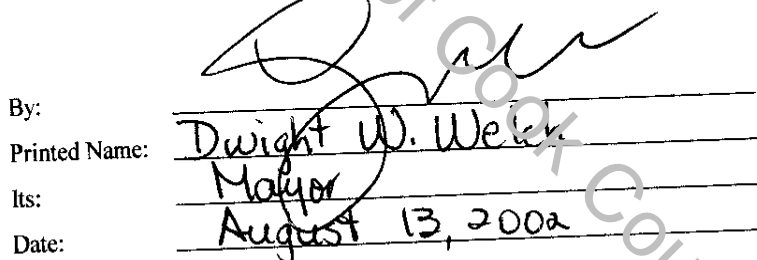 By:
Printed Name: Dwight W. Welch
Its: Mayor
Date: August 13, 2002
of Cook Cou